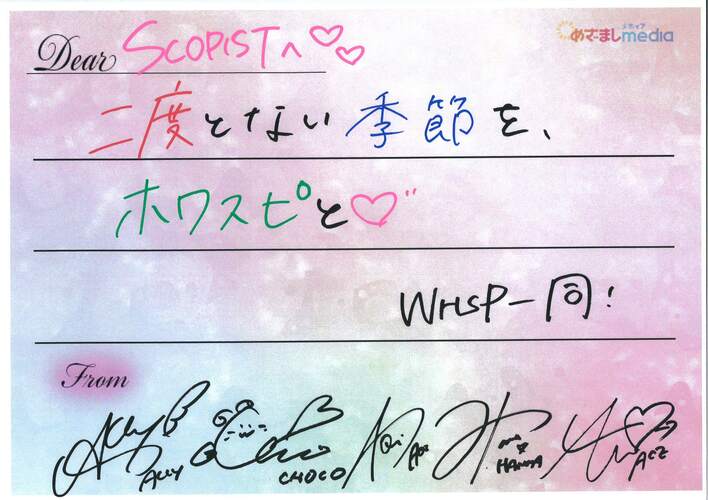 めざましmedia
メディア
Dear SCOPISTへ♡♡
二度とない季節を、
ホワスピと♡"
WHSP一同!
From
ALLY CHOCO AOI HANNA ACE